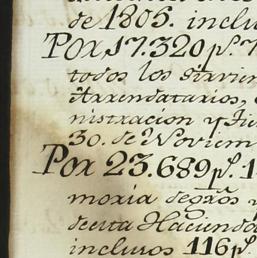 de 1805. inclu
Por 17.320 p.s 7
todos los sirvien
Arrendatarios,
nistracion y
30. de Noviem
Por 23.689 p.s 1
moria de
decita Hacienda
inclusos 116 p.s